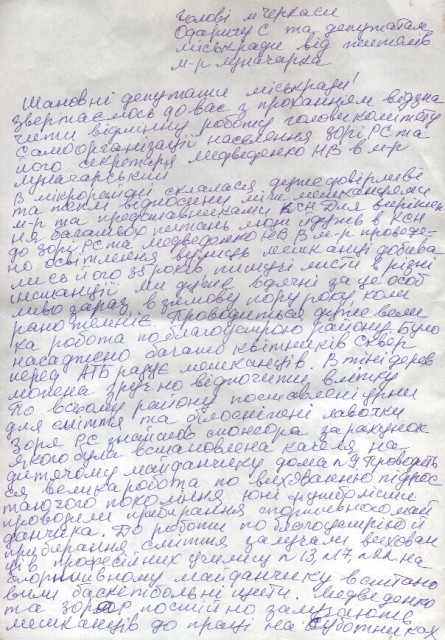 Голові м Черкаси
Одаричу С та депутатам
міськради від жителів
м-р Луначарка
Шановні депутати міськради!
Звертаємось до вас з проханням відзна
чити відмінну роботу голови комітету
самоорганізації населення Зорі РС та
його секретаря Медведенко НВ в м-р
Луначарський
В мікрорайоні склалася дуже довірливі
та теплі відносини між мешканцями
м-р та представниками КСН Для вирішен
ня багатьох питань люди ідуть в КСН
до Зорі РС та Медведенко НВ В м-р проведе-
но освітлення вулиць мешканці добива
лись його 35 років пишучі листи в різні
інстанції ми дуже вдячні за це особ
ливо зараз в зимову пору року, коли
рано темніє. Проводиться дуже вели
ка робота по благоустрою району було
насаджено багато квітників Сквер
перед АТБ радує мешканців. В тіні дерев
можна зручно відпочити влітку
По всьому району поставлені урни
для сміття та білосніжні лавочки
Зоря РС знайшов спонсора за рахунок
якого була встановлена качеля на
дитячому майданчику дома №9 Проводить
ся велика робота по вихованню підрос
таючого покоління юні футболісти
проводили прибирання спортивного май
данчика. До роботи по благоустрою й
прибирання сміття залучали вихован
ців професійних училищ №13, №17 на
спортивному майданчику встано
вили баскетбольні щити. Медведенко
та Зоря Р постійно залучають
мешканців до праці на суботниках